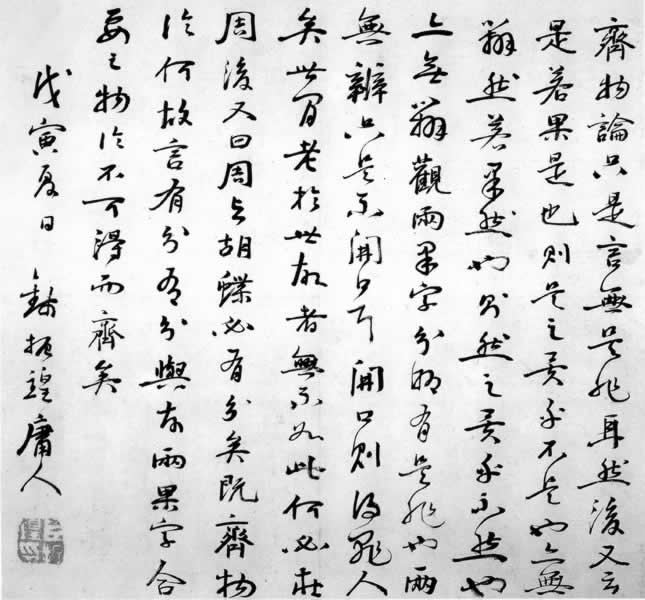 齊物論只是言無是非耳然後又云
是若果是也則是之異乎不是也亦無
辯然若果然也則然之異乎不然也
亦無辯觀兩果字分明有是非也兩
無辯只是不開口耳開口則得罪人
矣世間老於世故者無不如此何必莊
周後又曰周與胡蝶必有分矣既齊物
論何故言有分有分與兩果字合
要之物論不可得而齊矣
戊寅夏日錢振鍠庸人